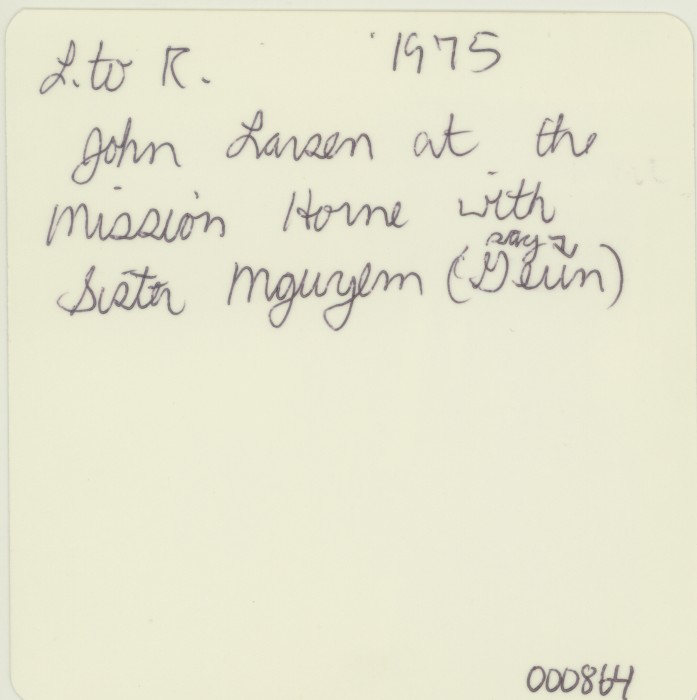 L. to R. 1975
John Larsen at the
Mission Home with
say
Sister Mguyem (Geun)
000864